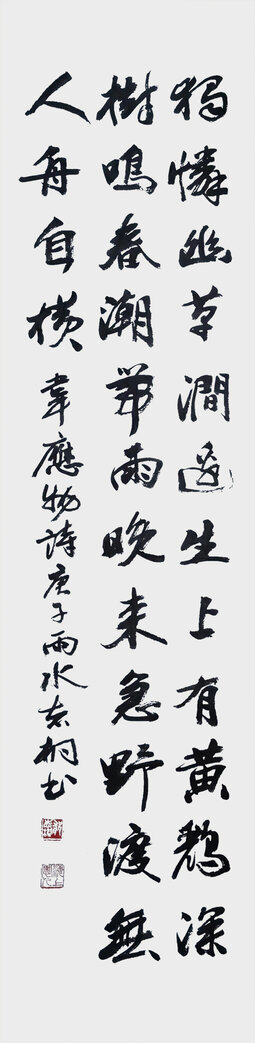 獨憐幽草澗邊生上有黃鸝深
樹鳴春潮帶雨晚来急野渡無
人舟自横 韋應物詩庚子雨水桐书